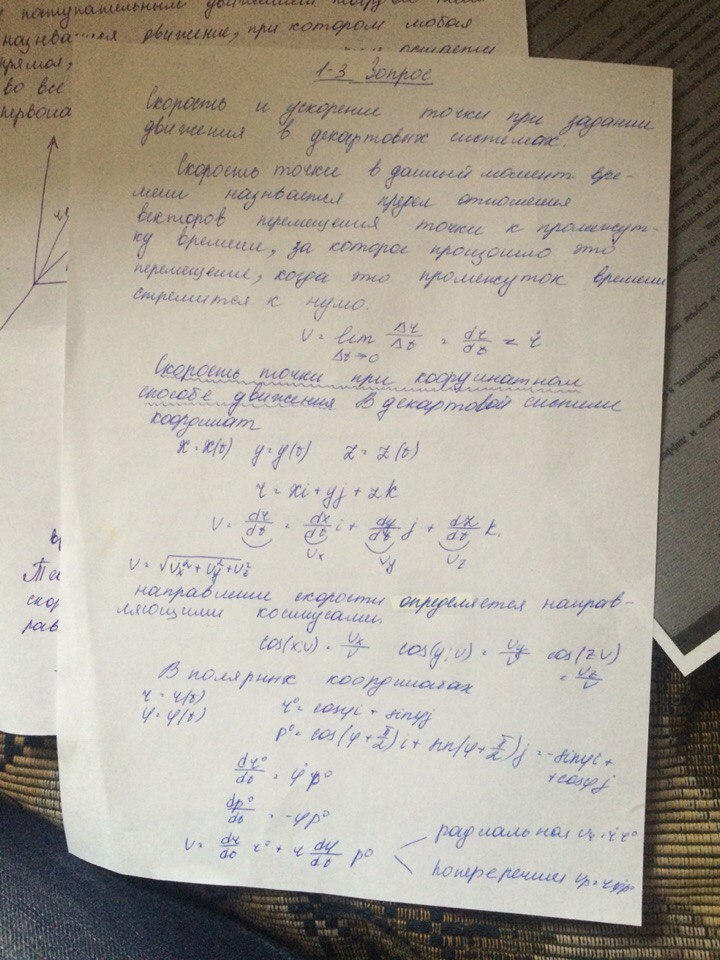 поступательным движением
называется движение, при котором любая
прямая,
остаётся
во все
1-3 Вопрос
Скорость и ускорение точки при задании
движения в декартовых системах.
Скорость точки в данный момент вре-
мени называется предел отношения
векторов перемещения точки к промежут-
ку времени, за которое произошло это
перемещение, когда это промежуток времени
стремится к нулю.
V = lim Δr/Δt = dr/dt = ṙ
Δt→0
Скорость точки при координатном
способе движения В декартовой системе
координат
x = x(t) y = y(t) z = z(t)
r = xi + yj + zk
V = dr/dt = dx/dt i + dy/dt j + dz/dt k.
Vx Vy Vz
V = √Vx² + Vy² + Vz²
направление скорости определяется направ-
ляющими косинусами
cos(x;v) = Vx/V cos(y;v) = Vy/V cos(zv)
= Vz/V
В полярных координатах
r = r(t)
φ = φ(t)
r° = cosφi + sinφj
p° = cos(φ + π/2)i + sin(φ + π/2)j = -sinφi +
+ cosφj
dr°/dt = φ̇ p°
dp°/dt = -φr°
V = dr/dt r° + r dφ/dt p°
радиальная Vr = ṙr°
поперечная Vp = rφ̇p°